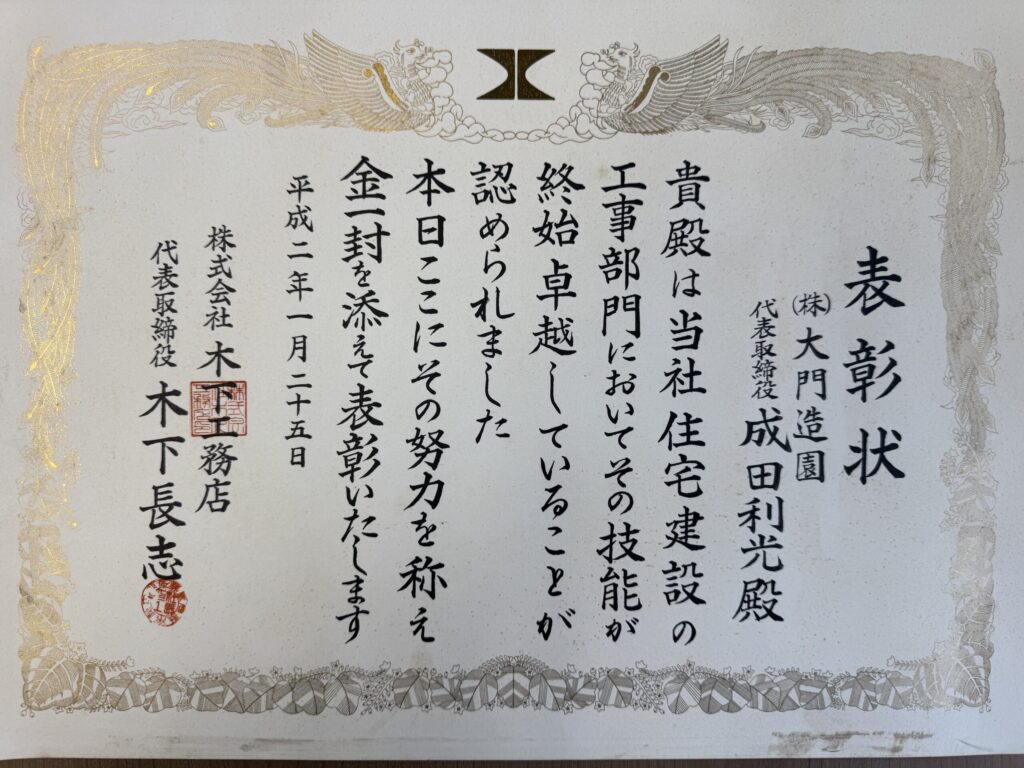 表彰状
㈱大門造園
代表取締役 成田利光殿
貴殿は当社住宅建設の
工事部門においてその技能が
終始卓越していることが
認められました
本日ここにその努力を称え
金一封を添えて表彰いたします
平成二年一月二十五日
株式会社 木下工務店
代表取締役 木下長志